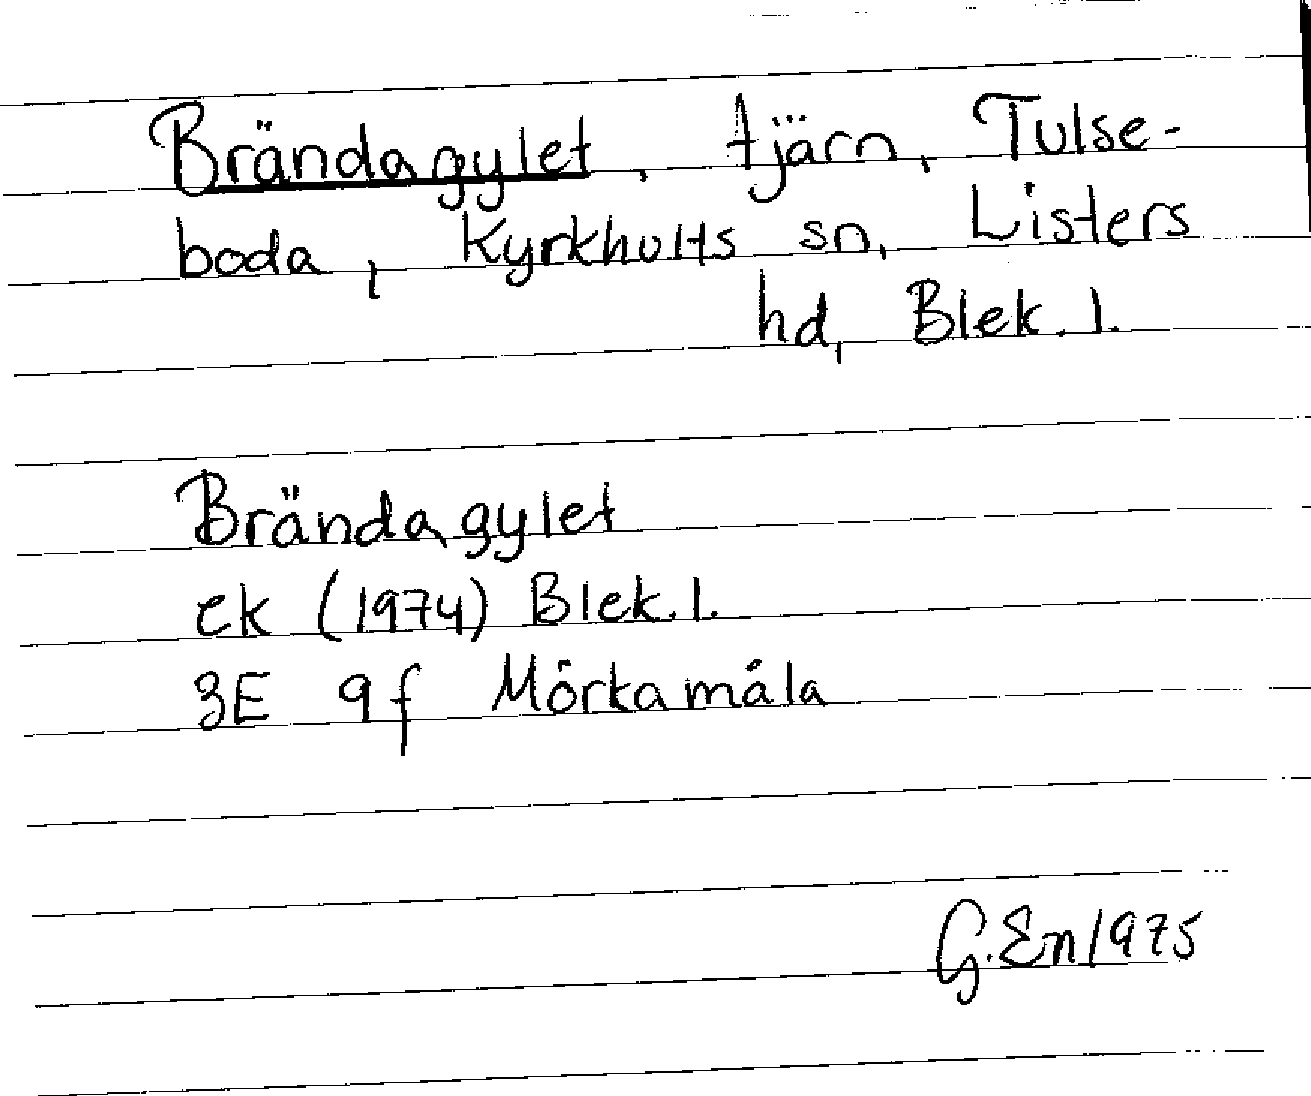 Brändagylet, tjärn, Tulse-
boda, Kyrkhults sn, Listers
hd, Blek. l.
Brändagylet
ek (1974) Blek. l.
3E 9f Mörkamåla
G. En 1975